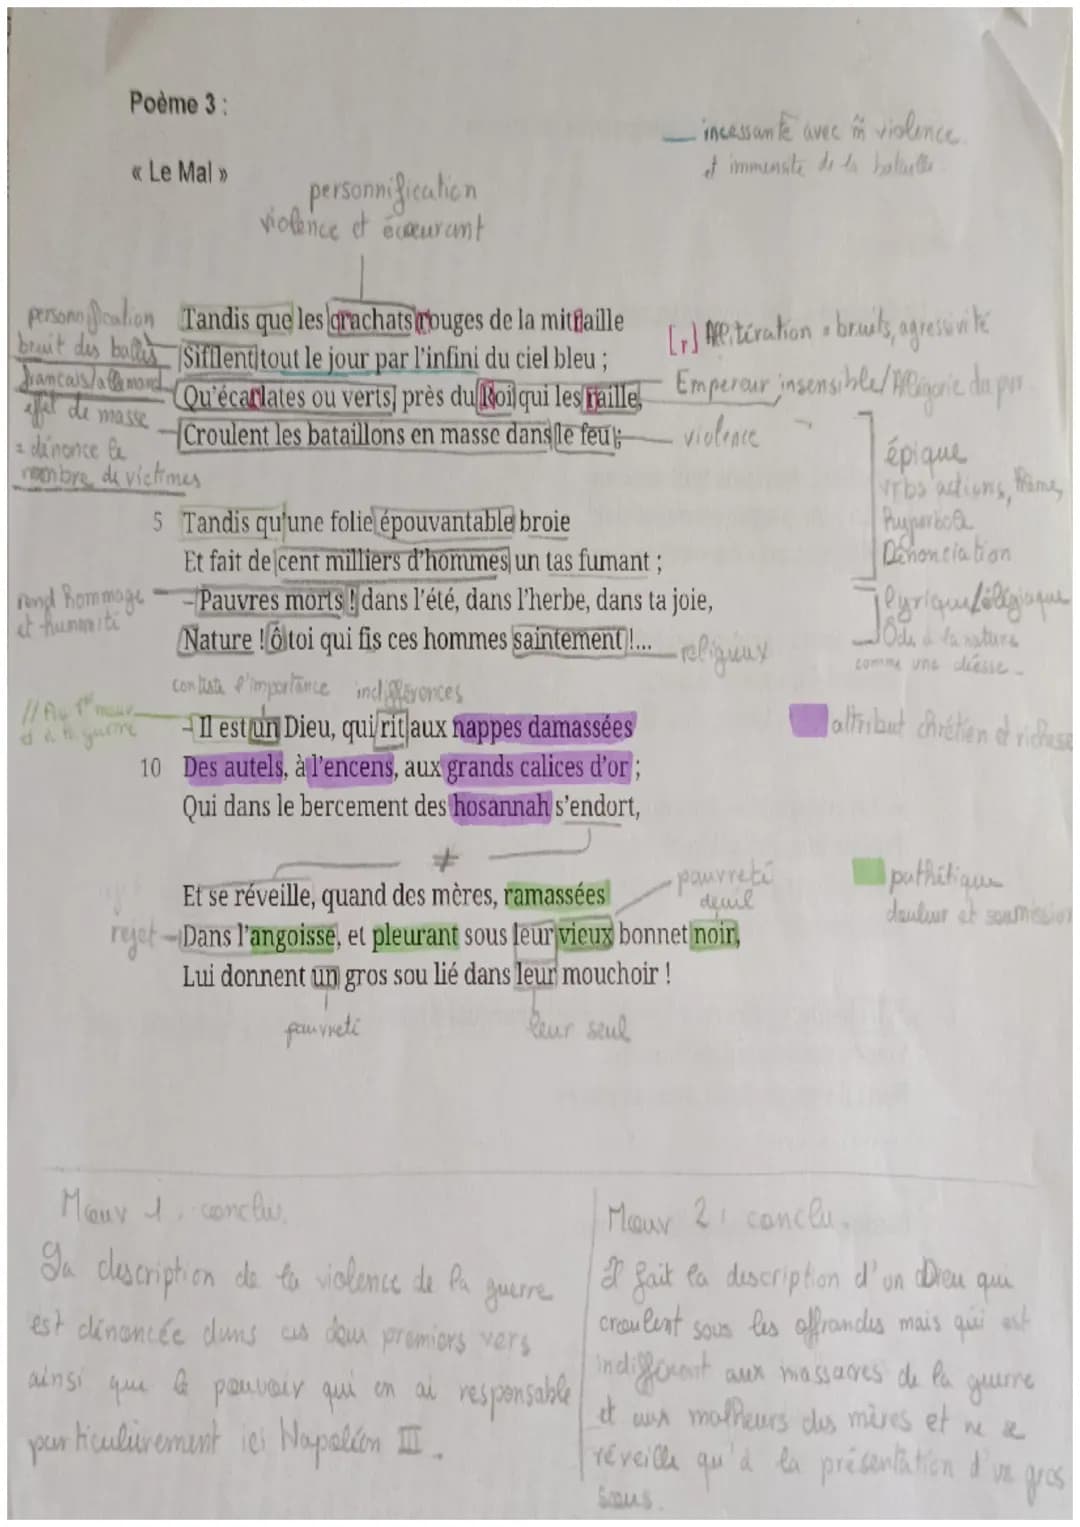 Poème 3 :
incessante avec m̂ violence
et immensité de la bataille
« Le Mal »
personnification
violence et écœurant
personnification
bruit des balles
français/allemand
effet de masse
= dénonce le
nombre de victimes
Tandis que les crachats rouges de la mitraille
Sifflent tout le jour par l'infini du ciel bleu ;
Qu'écarlates ou verts, près du Roi qui les raille,
Croulent les bataillons en masse dans le feu ;
[r] Allitération = bruits, agressivité
Empereur insensible/Allégorie du pvr
violence
épique
vrbs actions,
hyperbole
Dénonciation
5 Tandis qu'une folie épouvantable broie
Et fait de cent milliers d'hommes un tas fumant ;
– Pauvres morts ! dans l'été, dans l'herbe, dans ta joie,
Nature ! ô toi qui fis ces hommes saintement !...
rend hommage
et humanité
religieux
lyrique/élégiaque
Ode à la nature
comme une déesse
conteste l'importance
indifférences
// Au 1er mouv
à la guerre
– Il est un Dieu, qui rit aux nappes damassées
10 Des autels, à l'encens, aux grands calices d'or ;
Qui dans le bercement des hosannah s'endort,
attribut chrétien et richesse
≠
Et se réveille, quand des mères, ramassées
Dans l'angoisse, et pleurant sous leur vieux bonnet noir,
Lui donnent un gros sou lié dans leur mouchoir !
rejet
pauvreté
deuil
pathétique
douleur et soumission
pauvreté
leur seul
Mouv 1 : conclu.
La description de la violence de la guerre
est dénoncée dans ces deux premiers vers
ainsi que le pouvoir qui en ai responsable
particulièrement ici Napoléon III.
Mouv 2 : conclu.
Il fait la description d'un Dieu qui
croulent sous les offrandes mais qui est
indifférent aux massacres de la guerre
et aux malheurs des mères et ne se
réveille qu'à la présentation d'un gros
sous.